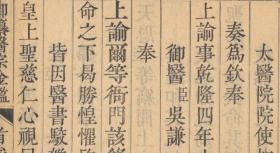 太醫院院使
奏為欽奉
上諭事乾隆四年
御醫臣吳謙
奉
上諭爾等衙門該
命之下曷勝惶懼
皆因醫書駁
皇上聖慈仁心視民
御纂醫宗金鑑